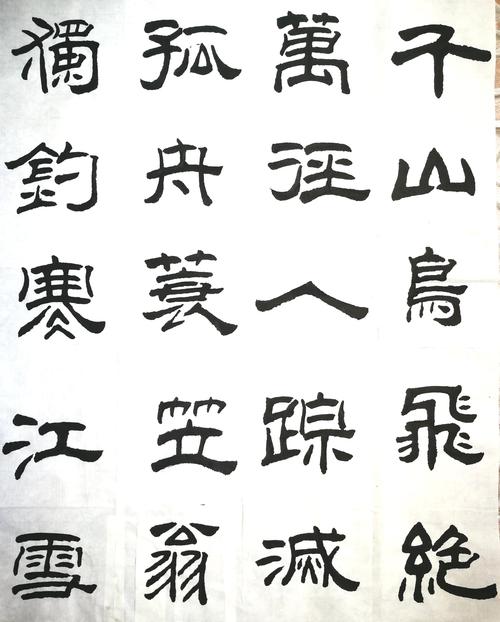 千山鳥飛絶
萬徑人踪滅
孤舟蓑笠翁
獨釣寒江雪